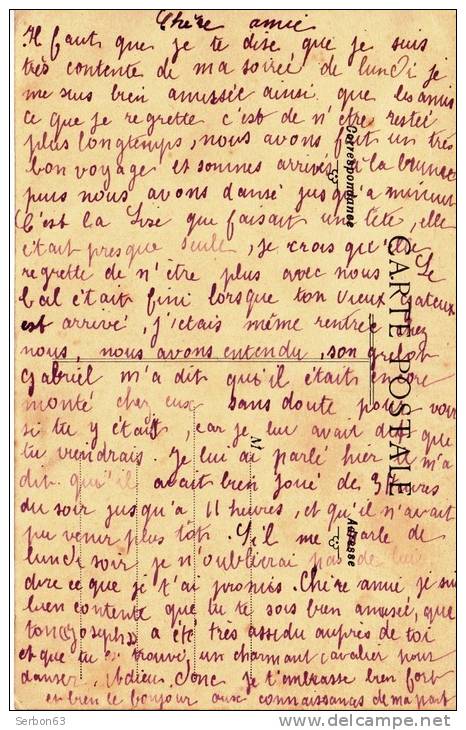 Chère amie
Il faut que je te dise que je suis
très contente de ma soirée de lundi je
me suis bien amusée ainsi que les amis
ce que je regrette c'est de n'être restée
plus longtemps, nous avons fait un très
bon voyage et sommes arrivé à la brune
puis nous avons dansé jusqu'a minuit
C'est la Lise que faisait une tête, elle
était presque seule, je crois qu'elle
regrette de n'être plus avec nous Le
bal était fini lorsque ton vieux gateux
est arrivé, j'etais même rentrée chez
nous, nous avons entendu, son
Gabriel m'a dit qu'il était encore
monté chez eux sans doute pour voir
si tu y était, car je lui avait dit que
tu viendrais. Je lui ai parlé hier il m'a
dit qu'il avait bien joué de 3 heures
du soir jusqu'a 11 heures, et qu'il n'avait
pu venir plus tôt. S'il me parle de
lundi soir je n'oublierai pas de lui
dire ce que je t'ai promis. Chère amie je suis
bien contente que tu te sois bien amusée, que
ton Joseph a été très assidu auprès de toi
et que tu as trouvé un charmant cavalier pour
danser. Adieu. Donc je t'embrasse bien fort
bien le bonjour aux connaissances de ma part
CARTE POSTALE
Correspondance
Adresse
M
Serbon63